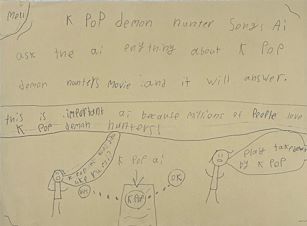 K PoP demon hunter Songs Ai
ask the ai enything about K PoP
demon hunters Movie and it will answer.
this is important ai because millions of People love
K PoP demon hunters!
K PoP ai
K PoP
OK
play takedown
by K PoP